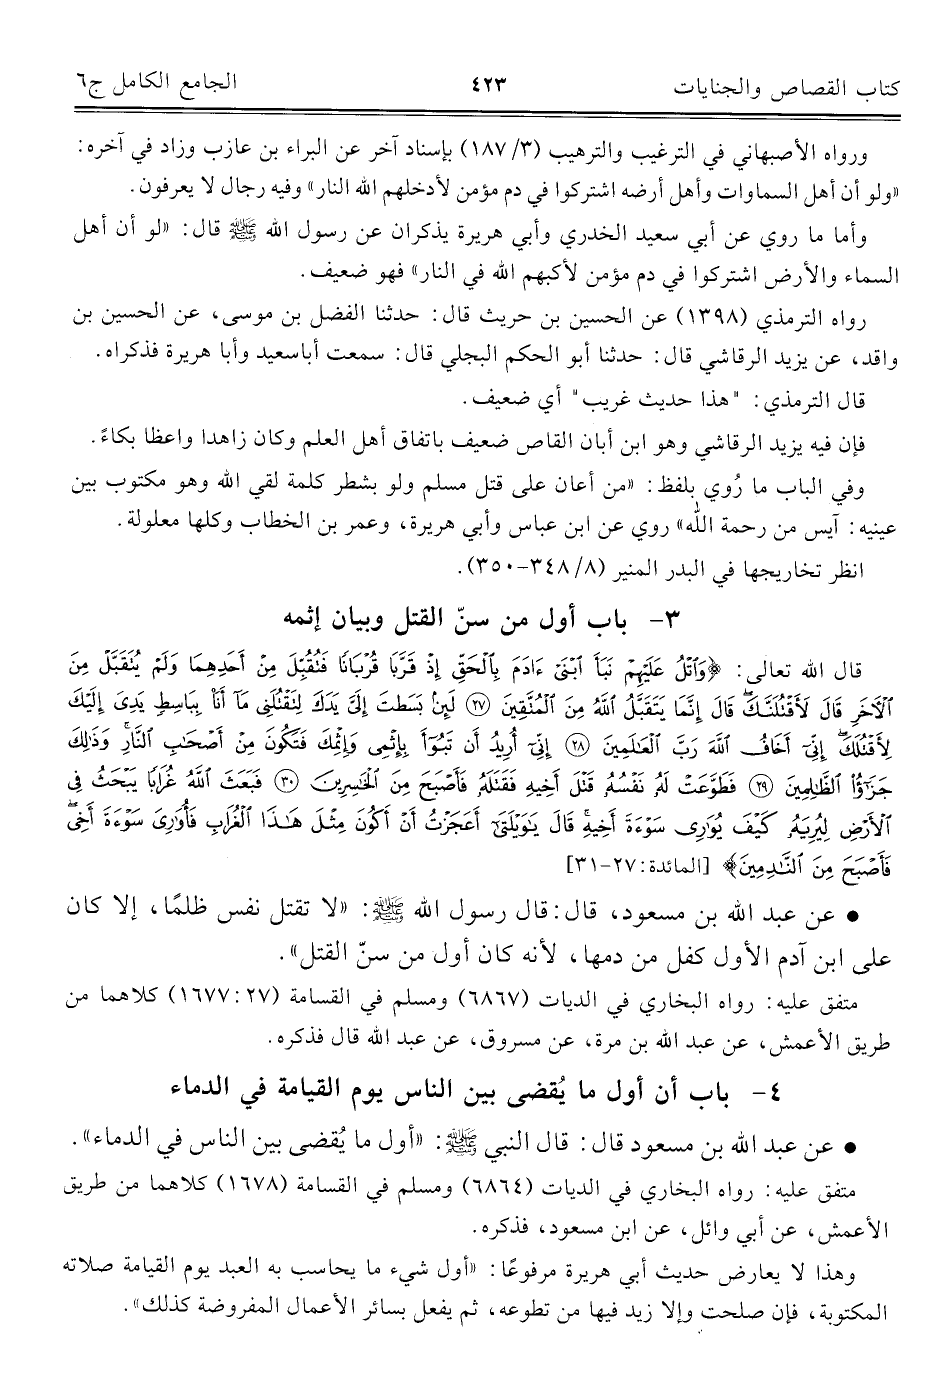 كتاب القصاص والجنايات ٤٢٣ الجامع الكامل ج٦
ورواه الأصبهاني في الترغيب والترهيب (٣/ ١٨٧) بإسناد آخر عن البراء بن عازب وزاد في آخره:
«ولو أن أهل السماوات وأهل أرضه اشتركوا في دم مؤمن لأدخلهم الله النار» وفيه رجال لا يعرفون.
وأما ما روي عن أبي سعيد الخدري وأبي هريرة يذكران عن رسول الله ﷺ قال: «لو أن أهل
السماء والأرض اشتركوا في دم مؤمن لأكبهم الله في النار» فهو ضعيف.
رواه الترمذي (١٣٩٨) عن الحسين بن حريث قال: حدثنا الفضل بن موسى، عن الحسين بن
واقد، عن يزيد الرقاشي قال: حدثنا أبو الحكم البجلي قال: سمعت أباسعيد وأبا هريرة فذكراه.
قال الترمذي: "هذا حديث غريب" أي ضعيف.
فإن فيه يزيد الرقاشي وهو ابن أبان القاص ضعيف باتفاق أهل العلم وكان زاهدا واعظا بكاءً.
وفي الباب ما رُوي بلفظ: «من أعان على قتل مسلم ولو بشطر كلمة لقي الله وهو مكتوب بين
عينيه: آيس من رحمة الله» روي عن ابن عباس وأبي هريرة، وعمر بن الخطاب وكلها معلولة.
انظر تخاريجها في البدر المنير (٨/ ٣٤٨-٣٥٠).
٣- باب أول من سنّ القتل وبيان إثمه
قال الله تعالى: ﴿وَٱتۡلُ عَلَيۡهِمۡ نَبَأَ ٱبۡنَيۡ ءَادَمَ بِٱلۡحَقِّ إِذۡ قَرَّبَا قُرۡبَانٗا فَتُقُبِّلَ مِنۡ أَحَدِهِمَا وَلَمۡ يُتَقَبَّلۡ مِنَ
ٱلۡأٓخَرِ قَالَ لَأَقۡتُلَنَّكَۖ قَالَ إِنَّمَا يَتَقَبَّلُ ٱللَّهُ مِنَ ٱلۡمُتَّقِينَ ٢٧ لَئِنۢ بَسَطتَ إِلَيَّ يَدَكَ لِتَقۡتُلَنِي مَآ أَنَا۠ بِبَاسِطٖ يَدِيَ إِلَيۡكَ
لِأَقۡتُلَكَۖ إِنِّيٓ أَخَافُ ٱللَّهَ رَبَّ ٱلۡعَٰلَمِينَ ٢٨ إِنِّيٓ أُرِيدُ أَن تَبُوٓأَ بِإِثۡمِي وَإِثۡمِكَ فَتَكُونَ مِنۡ أَصۡحَٰبِ ٱلنَّارِۚ وَذَٰلِكَ
جَزَٰٓؤُاْ ٱلظَّٰلِمِينَ ٢٩ فَطَوَّعَتۡ لَهُۥ نَفۡسُهُۥ قَتۡلَ أَخِيهِ فَقَتَلَهُۥ فَأَصۡبَحَ مِنَ ٱلۡخَٰسِرِينَ ٣٠ فَبَعَثَ ٱللَّهُ غُرَابٗا يَبۡحَثُ فِي
ٱلۡأَرۡضِ لِيُرِيَهُۥ كَيۡفَ يُوَٰرِي سَوۡءَةَ أَخِيهِۚ قَالَ يَٰوَيۡلَتَىٰٓ أَعَجَزۡتُ أَنۡ أَكُونَ مِثۡلَ هَٰذَا ٱلۡغُرَابِ فَأُوَٰرِيَ سَوۡءَةَ أَخِيۖ
فَأَصۡبَحَ مِنَ ٱلنَّٰدِمِينَ﴾ [المائدة: ٢٧-٣١]
• عن عبد الله بن مسعود، قال: قال رسول الله ﷺ: «لا تقتل نفس ظلمًا، إلا كان
على ابن آدم الأول كفل من دمها، لأنه كان أول من سنّ القتل».
متفق عليه: رواه البخاري في الديات (٦٨٦٧) ومسلم في القسامة (٢٧: ١٦٧٧) كلاهما من
طريق الأعمش، عن عبد الله بن مرة، عن مسروق، عن عبد الله قال فذكره.
٤- باب أن أول ما يُقضى بين الناس يوم القيامة في الدماء
• عن عبد الله بن مسعود قال: قال النبي ﷺ: «أول ما يُقضى بين الناس في الدماء».
متفق عليه: رواه البخاري في الديات (٦٨٦٤) ومسلم في القسامة (١٦٧٨) كلاهما من طريق
الأعمش، عن أبي وائل، عن ابن مسعود، فذكره.
وهذا لا يعارض حديث أبي هريرة مرفوعًا: «أول شيء ما يحاسب به العبد يوم القيامة صلاته
المكتوبة، فإن صلحت وإلا زيد فيها من تطوعه، ثم يفعل بسائر الأعمال المفروضة كذلك».